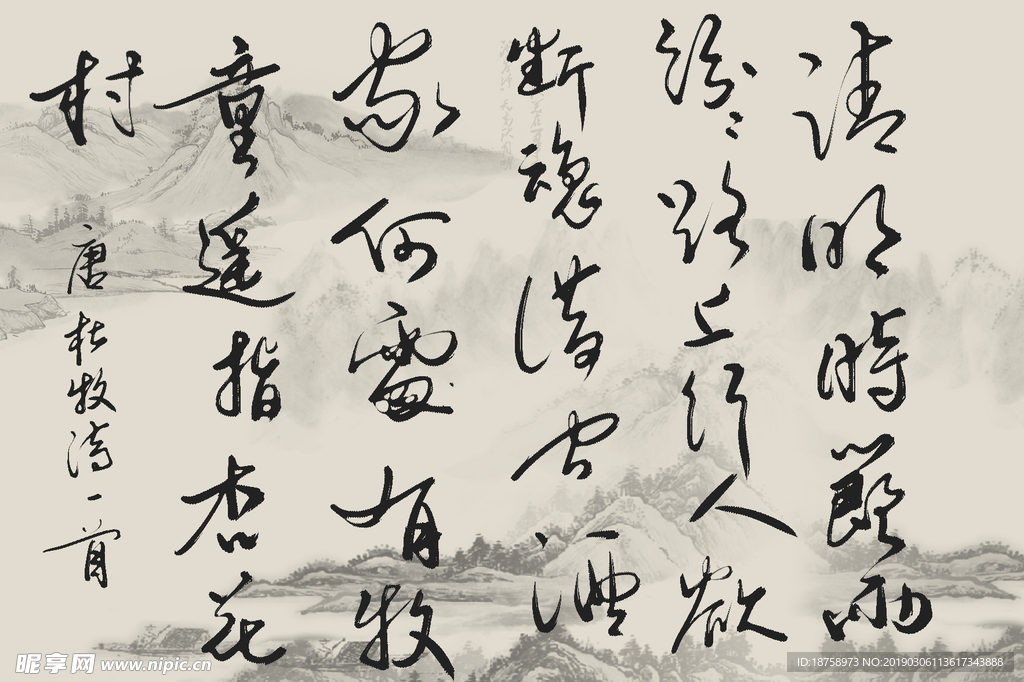 清明時節雨
紛〻路上行人欲
断魂借问酒
家何處有牧
童遥指杏花
村
唐杜牧诗一首
昵享网 www.nipic.cn
ID:18758973 NO:20190306113617343888